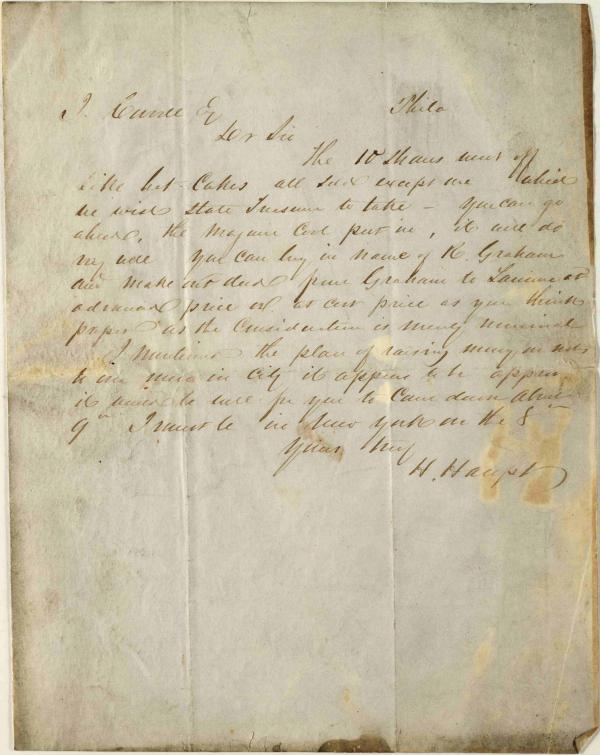 Phila
Dr Sir
The 10 Shares went off
like hot-cakes all sold except one which
we wish to take - you can go
ahead, the put in, it will do
very well you can buy in name of R. Graham
and make out deed from Graham to at
advanced price or at cost price as you think
proper as the Consideration is merely nominal
I mentioned the plan of raising money on
to in City it appears to be
it would be well for you to Come down about
9th I must be in New York on the 8th
Yours
H. Haupt